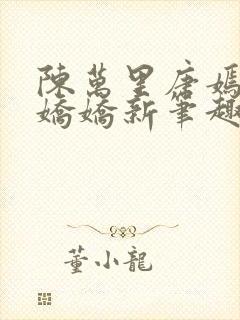 陳萬里唐嫣
嬌嬌新筆趣
董小龍